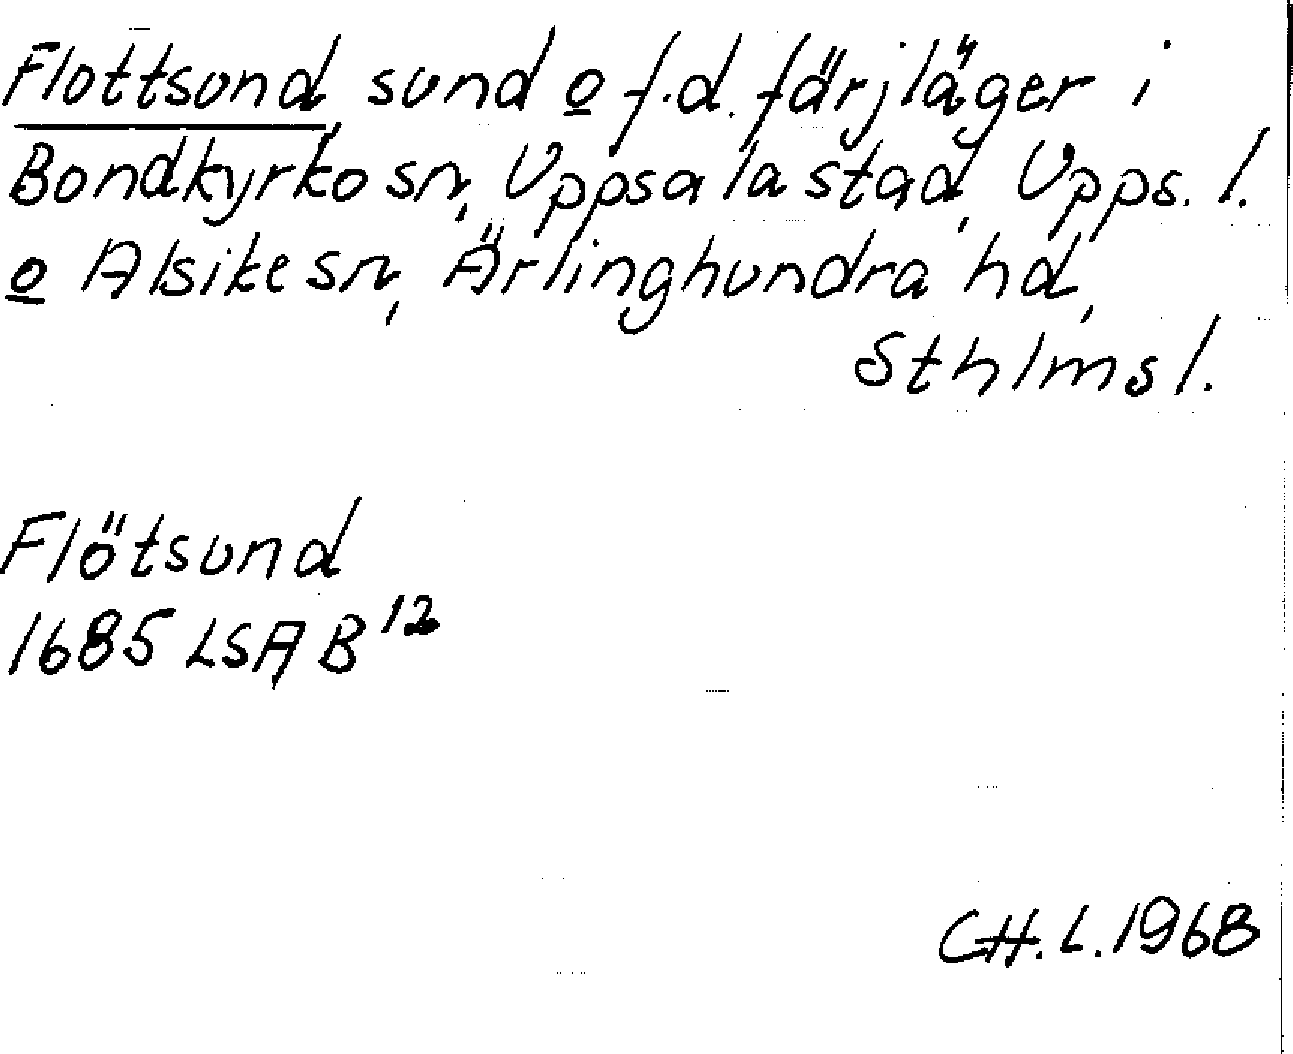 Flottsund, sund o f.d. färjläger i
Bondkyrko sn, Uppsala stad, Upps. l.
o Alsike sn, Ärlinghundra hd,
Sthlms l.
Flötsund
1685 LSA B 12
CH. L. 1968